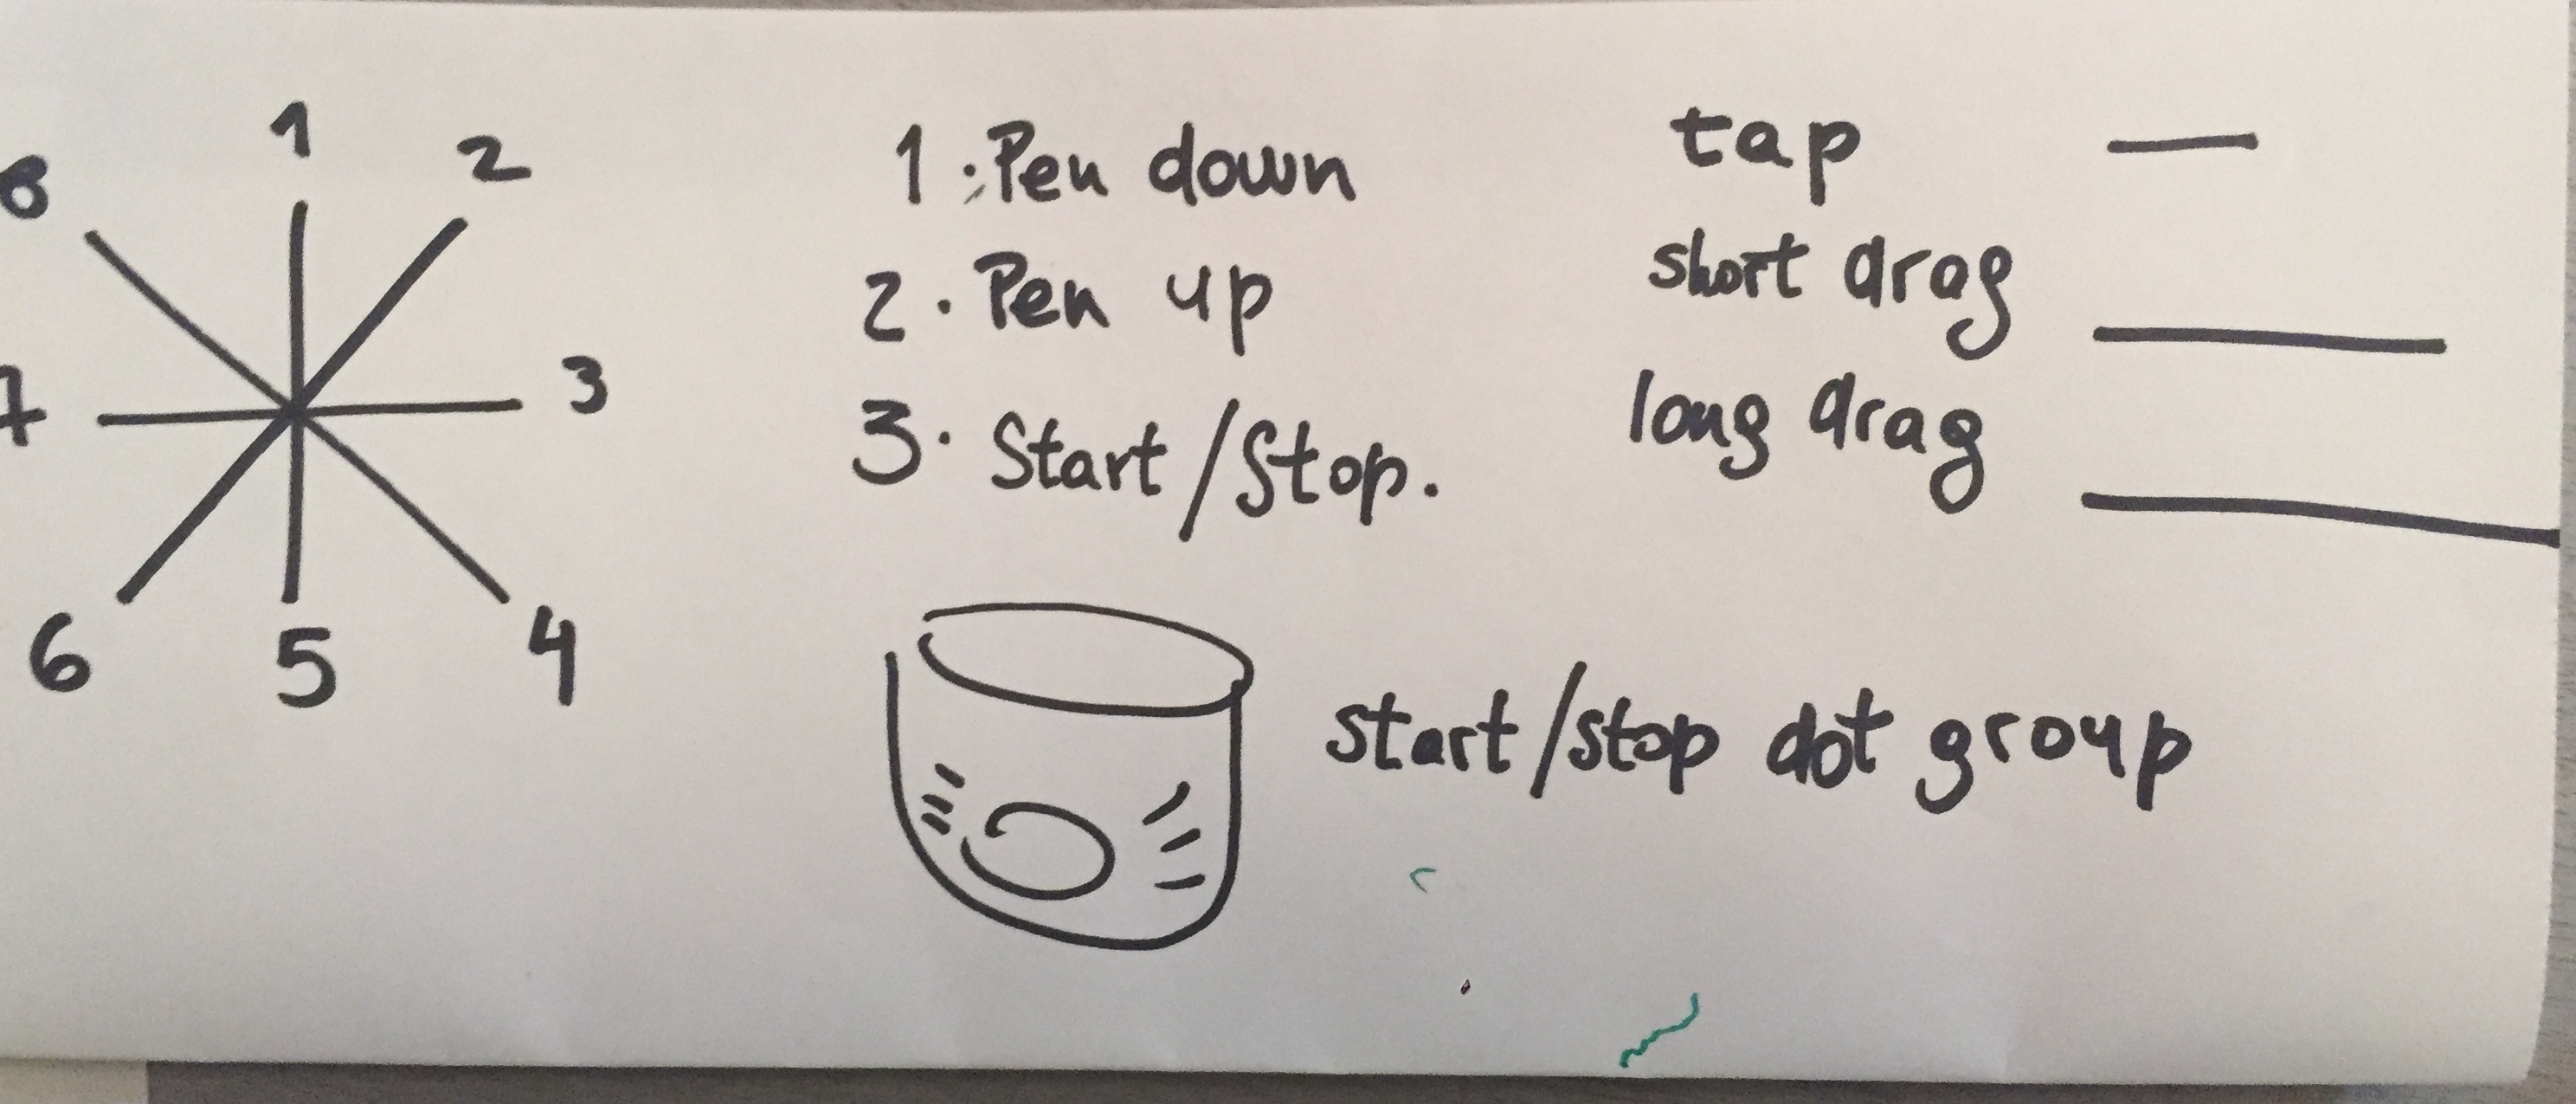 1
2
3
4
5
6
7
8
1. Pen down
2. Pen up
3. Start/Stop.
tap
short drag
long drag
start/stop dot group